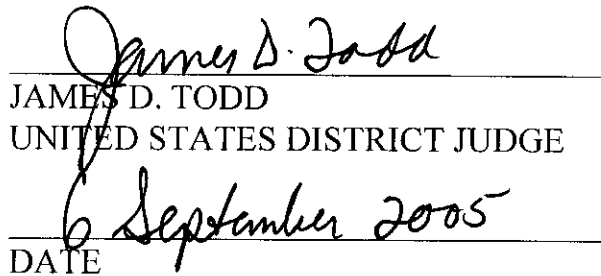 James D. Todd
JAMES D. TODD
UNITED STATES DISTRICT JUDGE
6 September 2005
DATE